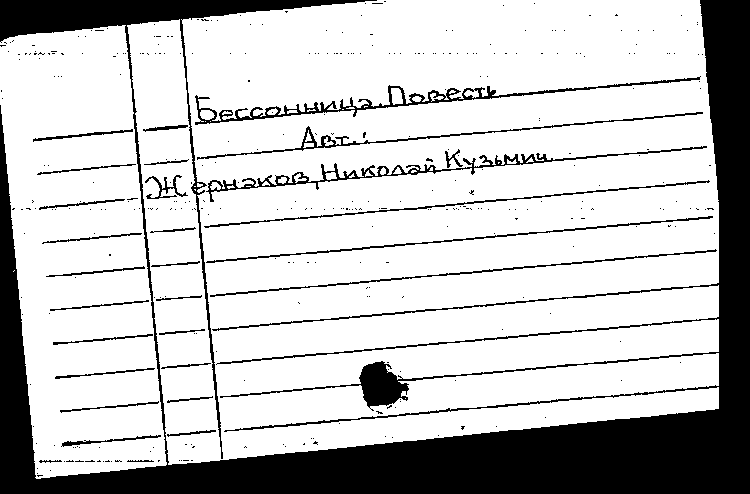 Бессонница. Повесть
Авт.:
Жернаков, Николай Кузьмич